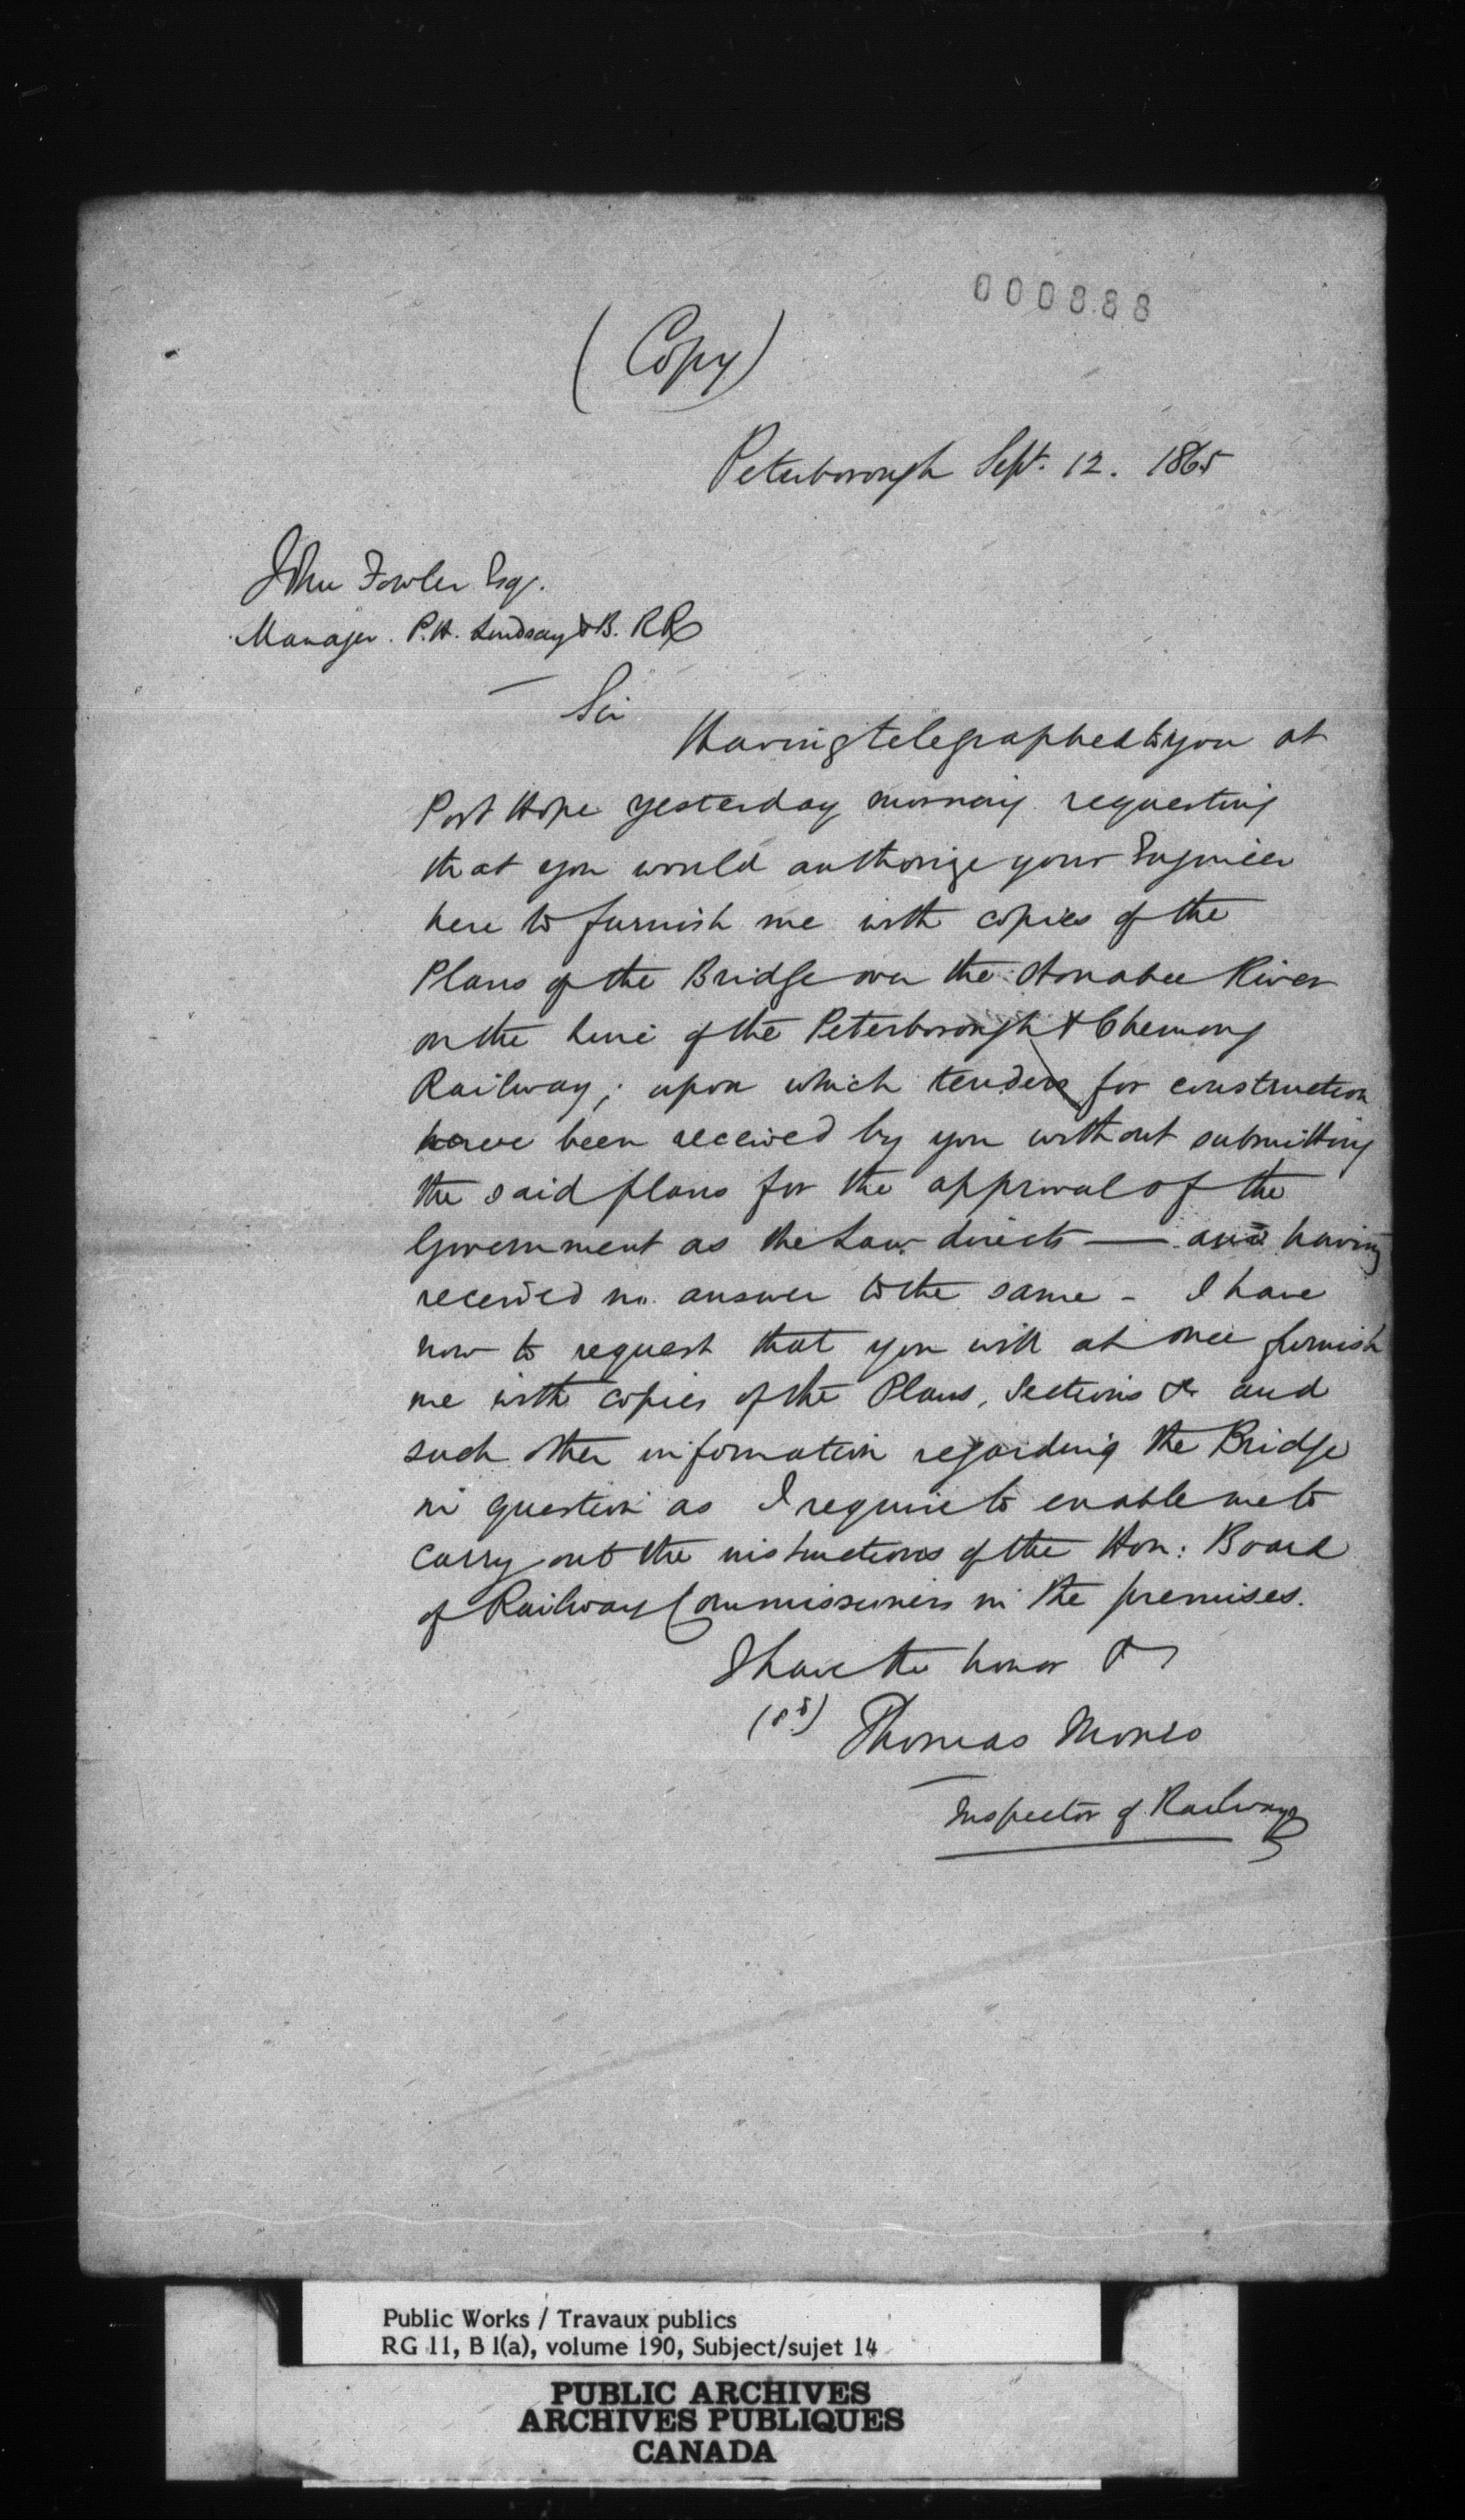 000888
(Copy)
Peterborough Sept. 12. 1865
John Fowler Esq.
Manager. P.H. Lindsay & B. RR
Sir
Having telegraphed to you at
Port Hope yesterday morning requesting
that you would authorize your Engineer
here to furnish me with copies of the
Plans of the Bridge over the Otonabee River
on the line of the Peterborough & Chemong
Railway; upon which tenders for construction
have been received by you without submitting
the said plans for the approval of the
Government as the Law directs — and having
received no answer to the same - I have
now to request that you will at once furnish
me with copies of the Plans, Sections &c and
such other information regarding the Bridge
in question as I require to enable me to
carry out the instructions of the Hon: Board
of Railway Commissioners in the premises.
I have the honor &c
(sd) Thomas Monro
Inspector of Railways
Public Works / Travaux publics
RG 11, B 1(a), volume 190, Subject/sujet 14
PUBLIC ARCHIVES
ARCHIVES PUBLIQUES
CANADA